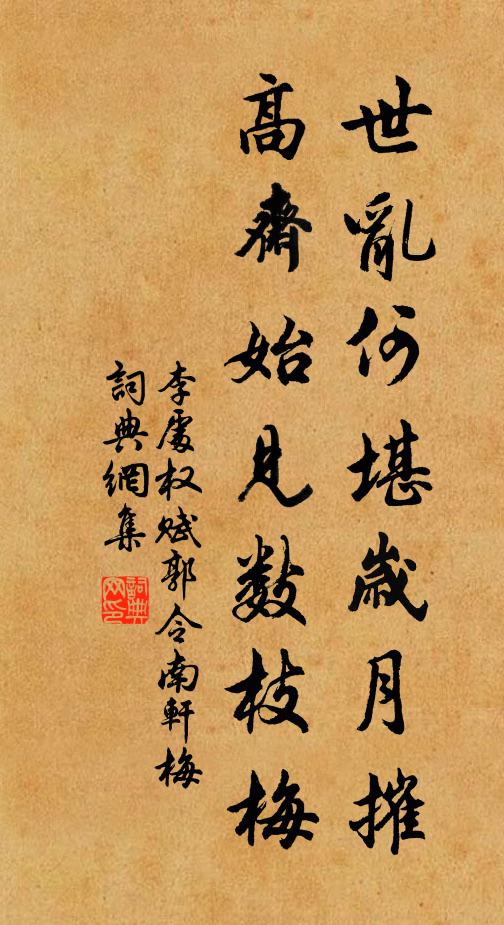 世亂何堪歲月摧
高齋始見數枝梅
李處权賦郭令南軒梅
詞典網集
詞典网印